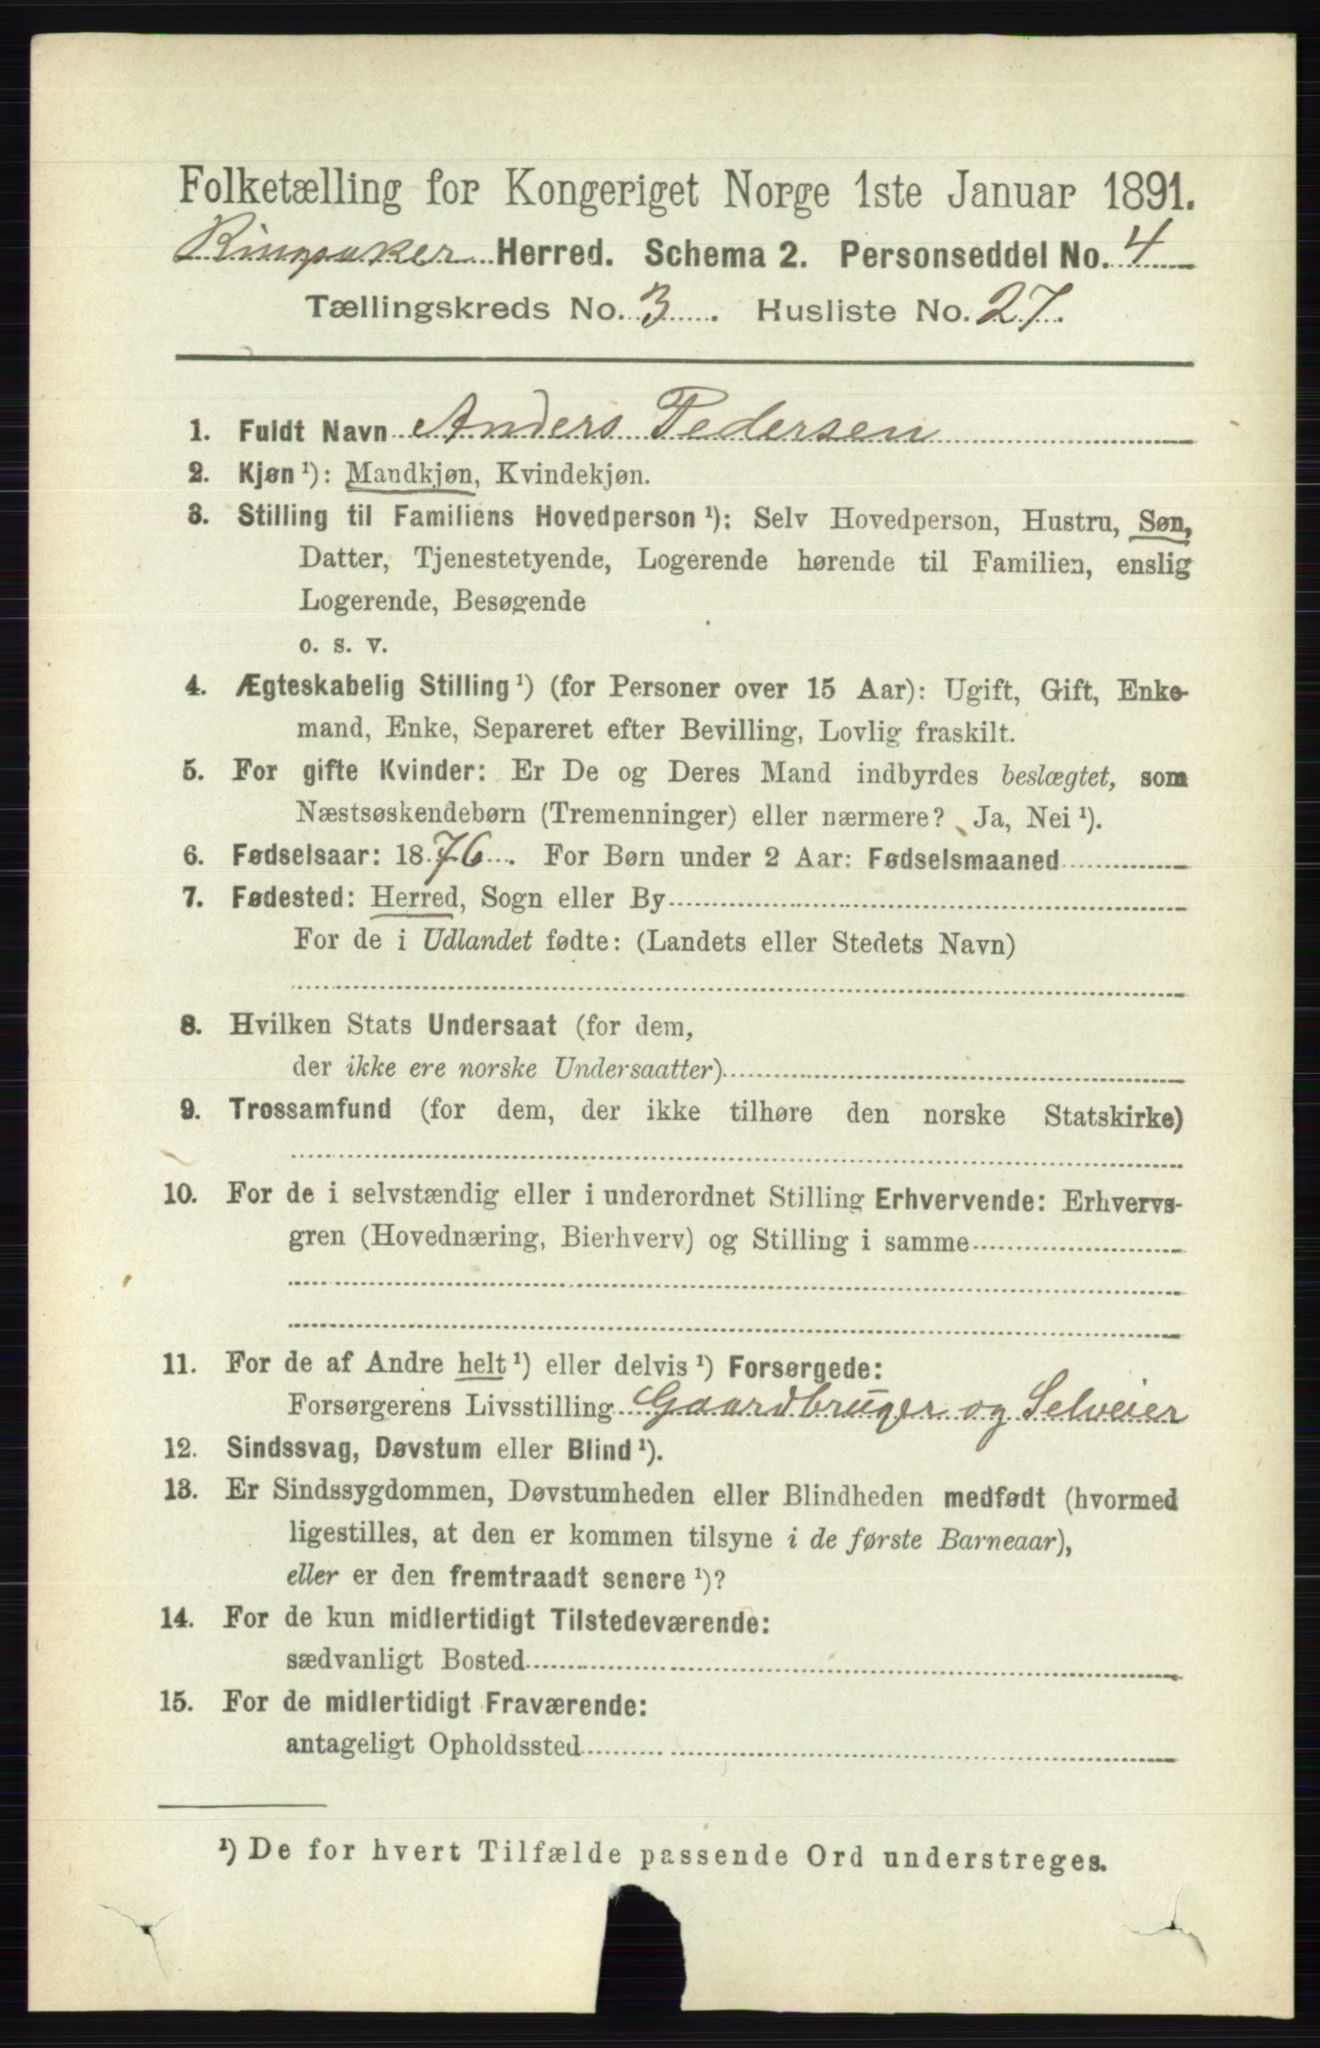 Folketælling for Kongeriget Norge 1ste Januar 1891.
Ringsaker Herred. Schema 2. Personseddel No. 4
Tællingskreds No. 3. Husliste No. 27.
1. Fuldt Navn Anders Pedersen
2. Kjøn ¹): Mandkjøn, Kvindekjøn.
3. Stilling til Familiens Hovedperson ¹): Selv Hovedperson, Hustru, Søn,
Datter, Tjenestetyende, Logerende hørende til Familien, enslig
Logerende, Besøgende
o. s. v.
4. Ægteskabelig Stilling ¹) (for Personer over 15 Aar): Ugift, Gift, Enke-
mand, Enke, Separeret efter Bevilling, Lovlig fraskilt.
5. For gifte Kvinder: Er De og Deres Mand indbyrdes beslægtet, som
Næstsøskendebørn (Tremenninger) eller nærmere? Ja, Nei ¹).
6. Fødselsaar: 1876. For Børn under 2 Aar: Fødselsmaaned
7. Fødested: Herred, Sogn eller By
For de i Udlandet fødte: (Landets eller Stedets Navn)
8. Hvilken Stats Undersaat (for dem,
der ikke ere norske Undersaatter)
9. Trossamfund (for dem, der ikke tilhøre den norske Statskirke)
10. For de i selvstændig eller i underordnet Stilling Erhvervende: Erhvervs-
gren (Hovednæring, Bierhverv) og Stilling i samme
11. For de af Andre helt ¹) eller delvis ¹) Forsørgede:
Forsørgerens Livsstilling Gaardbruger og Selveier
12. Sindssvag, Døvstum eller Blind ¹).
13. Er Sindssygdommen, Døvstumheden eller Blindheden medfødt (hvormed
ligestilles, at den er kommen tilsyne i de første Barneaar),
eller er den fremtraadt senere ¹)?
14. For de kun midlertidigt Tilstedeværende:
sædvanligt Bosted
15. For de midlertidigt Fraværende:
antageligt Opholdssted
¹) De for hvert Tilfælde passende Ord understreges.